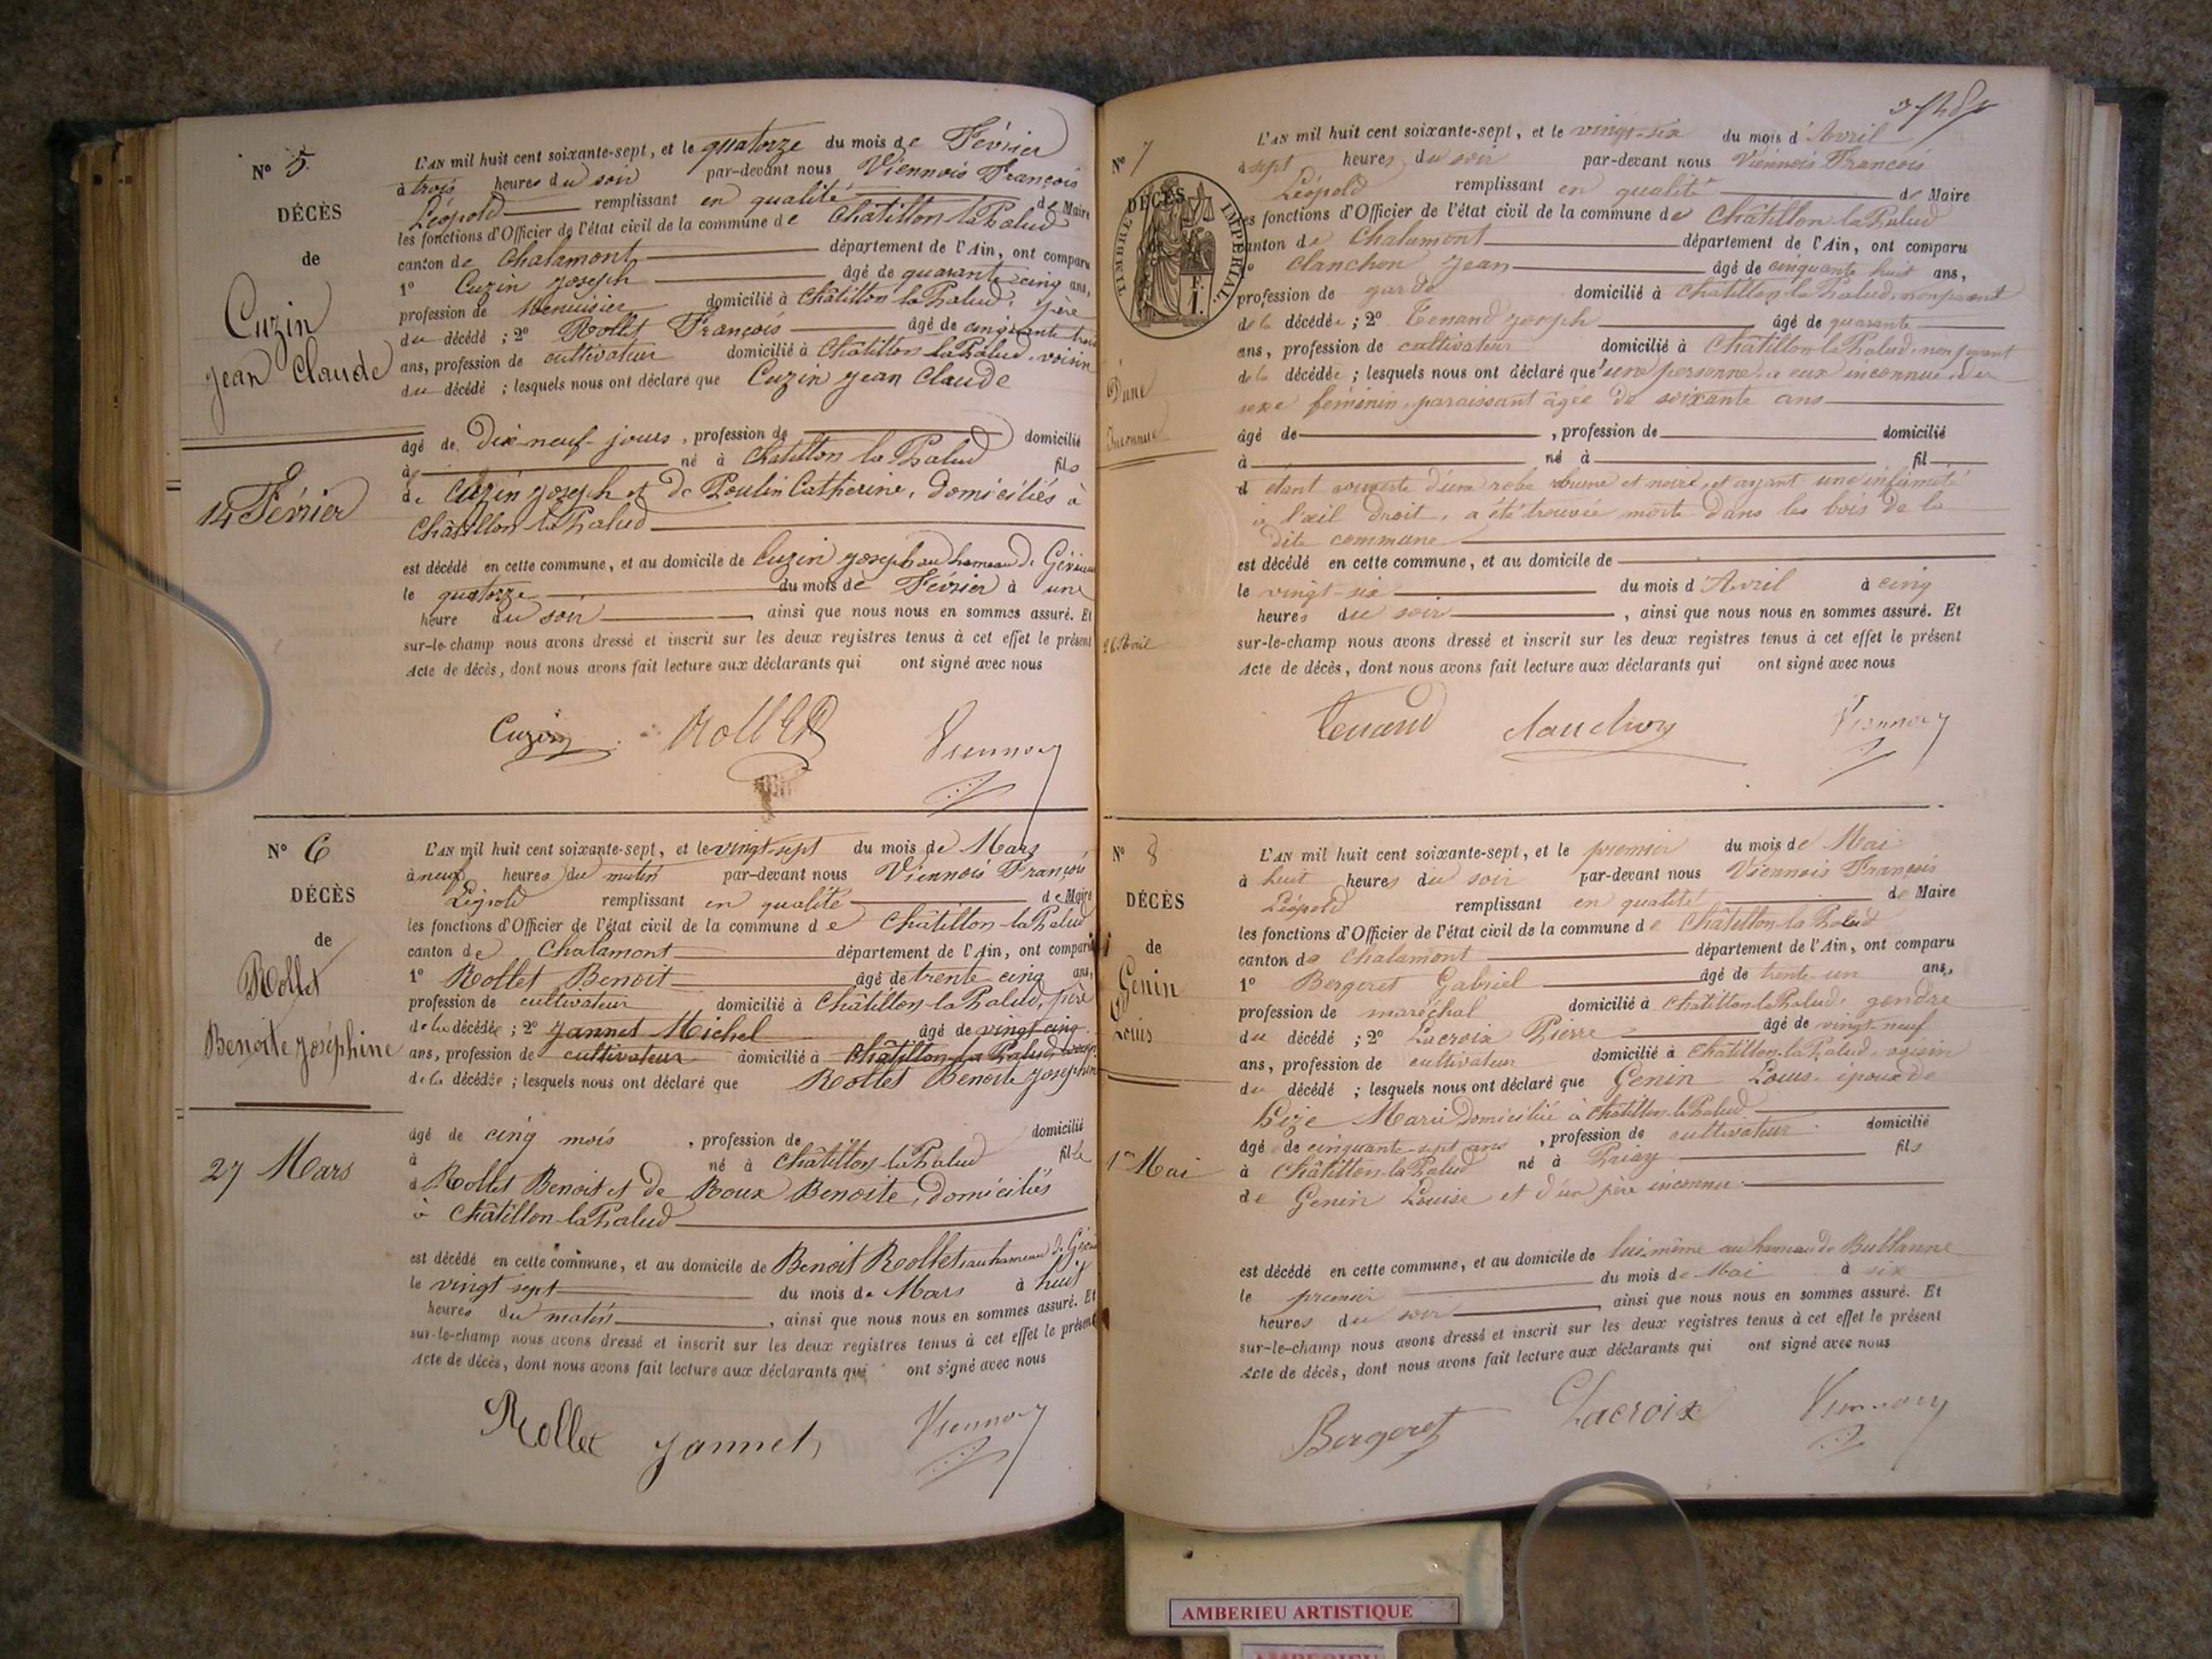 N° 5.
DÉCÈS
de
Cuzin
Jean Claude
14 Février
L'AN mil huit cent soixante-sept, et le quatorze du mois de Février
à trois heures du soir par-devant nous Viennois François
Léopold remplissant en qualité de Maire
les fonctions d'Officier de l'état civil de la commune de Châtillon-la-Palud
canton de Chalamont département de l'Ain, ont comparu
1° Cuzin Joseph âgé de quarante cinq ans,
profession de Menuisier domicilié à Châtillon la Palud, père
du décédé ; 2° Rollet François âgé de cinquante trois
ans, profession de cultivateur domicilié à Châtillon la Palud, voisin
du décédé ; lesquels nous ont déclaré que Cuzin Jean Claude
âgé de Dix-neuf jours, profession de domicilié
à né à Châtillon la Palud fils
de Cuzin Joseph et de Poulin Catherine, domiciliés à
Châtillon-la-Palud
est décédé en cette commune, et au domicile de Cuzin Joseph au hameau de
le quatorze du mois de Février à une
heure du soir, ainsi que nous nous en sommes assuré. Et
sur-le-champ nous avons dressé et inscrit sur les deux registres tenus à cet effet le présent
Acte de décès, dont nous avons fait lecture aux déclarants qui ont signé avec nous
Cuzin Rollet Viennois
N° 6
DÉCÈS
de
Rollet
Benoite Joséphine
27 Mars
L'AN mil huit cent soixante-sept, et le vingt-sept du mois de Mars
à neuf heures du matin par-devant nous Viennois François
Léopold remplissant en qualité de Maire
les fonctions d'Officier de l'état civil de la commune de Châtillon-la-Palud
canton de Chalamont département de l'Ain, ont comparu
1° Rollet Benoit âgé de trente cinq ans,
profession de cultivateur domicilié à Châtillon-la-Palud, père
de la décédée ; 2° Jannet Michel âgé de vingt-cinq
ans, profession de cultivateur domicilié à Châtillon-la-Palud, voisin
de la décédée ; lesquels nous ont déclaré que Rollet Benoite Joséphine
âgé de cinq mois, profession de domicilié
à né à Châtillon-la-Palud fille
d Rollet Benoit et de Roux Benoite, domiciliés
à Châtillon-la-Palud
est décédé en cette commune, et au domicile de Benoit Rollet, au hameau de
le vingt sept du mois de Mars à huit
heures du matin, ainsi que nous nous en sommes assuré. Et
sur-le-champ nous avons dressé et inscrit sur les deux registres tenus à cet effet le présent
Acte de décès, dont nous avons fait lecture aux déclarants qui ont signé avec nous
Rollet Jannet Viennois
N° 7
DÉCÈS
TIMBRE IMPÉRIAL
D'une
Inconnue
26 Avril
L'AN mil huit cent soixante-sept, et le vingt-six du mois d'Avril
à sept heures du soir par-devant nous Viennois François
Léopold remplissant en qualité de Maire
les fonctions d'Officier de l'état civil de la commune de Châtillon-la-Palud
canton de Chalamont département de l'Ain, ont comparu
1° Clanchon Jean âgé de cinquante huit ans,
profession de garde domicilié à Châtillon-la-Palud, non parent
de la décédée ; 2° Tenand Joseph âgé de quarante
ans, profession de cultivateur domicilié à Châtillon-la-Palud, non parent
de la décédée ; lesquels nous ont déclaré que une personne, à eux inconnue, du
sexe féminin, paraissant âgée de soixante ans
âgé de, profession de domicilié
à né à fil
d étant couverte d'une robe brune et noire, et ayant une infirmité
à l'œil droit, a été trouvée morte dans les bois de la
dite commune
est décédé en cette commune, et au domicile de
le vingt-six du mois d'Avril à cinq
heures du soir, ainsi que nous nous en sommes assuré. Et
sur-le-champ nous avons dressé et inscrit sur les deux registres tenus à cet effet le présent
Acte de décès, dont nous avons fait lecture aux déclarants qui ont signé avec nous
Tenand Clanchon Viennois
N° 8
DÉCÈS
de
Genin
Louis
1er Mai
L'AN mil huit cent soixante-sept, et le premier du mois de Mai
à huit heures du soir par-devant nous Viennois François
Léopold remplissant en qualité de Maire
les fonctions d'Officier de l'état civil de la commune de Châtillon-la-Palud
canton de Chalamont département de l'Ain, ont comparu
1° Bergeret Gabriel âgé de trente-un ans,
profession de maréchal domicilié à Châtillon-la-Palud, gendre
du décédé ; 2° Lacroix Pierre âgé de vingt neuf
ans, profession de cultivateur domicilié à Châtillon-la-Palud, voisin
du décédé ; lesquels nous ont déclaré que Genin Louis, époux de
Marie domicilié à Châtillon-la-Palud
âgé de cinquante-sept ans, profession de cultivateur domicilié
à Châtillon-la-Palud né à Priay fils
de Genin Louise et d'un père inconnu
est décédé en cette commune, et au domicile de lui-même au hameau de Bublanne
le premier du mois de Mai à six
heures du soir, ainsi que nous nous en sommes assuré. Et
sur-le-champ nous avons dressé et inscrit sur les deux registres tenus à cet effet le présent
Acte de décès, dont nous avons fait lecture aux déclarants qui ont signé avec nous
Bergeret Lacroix Viennois
AMBERIEU ARTISTIQUE
AMBERIEU